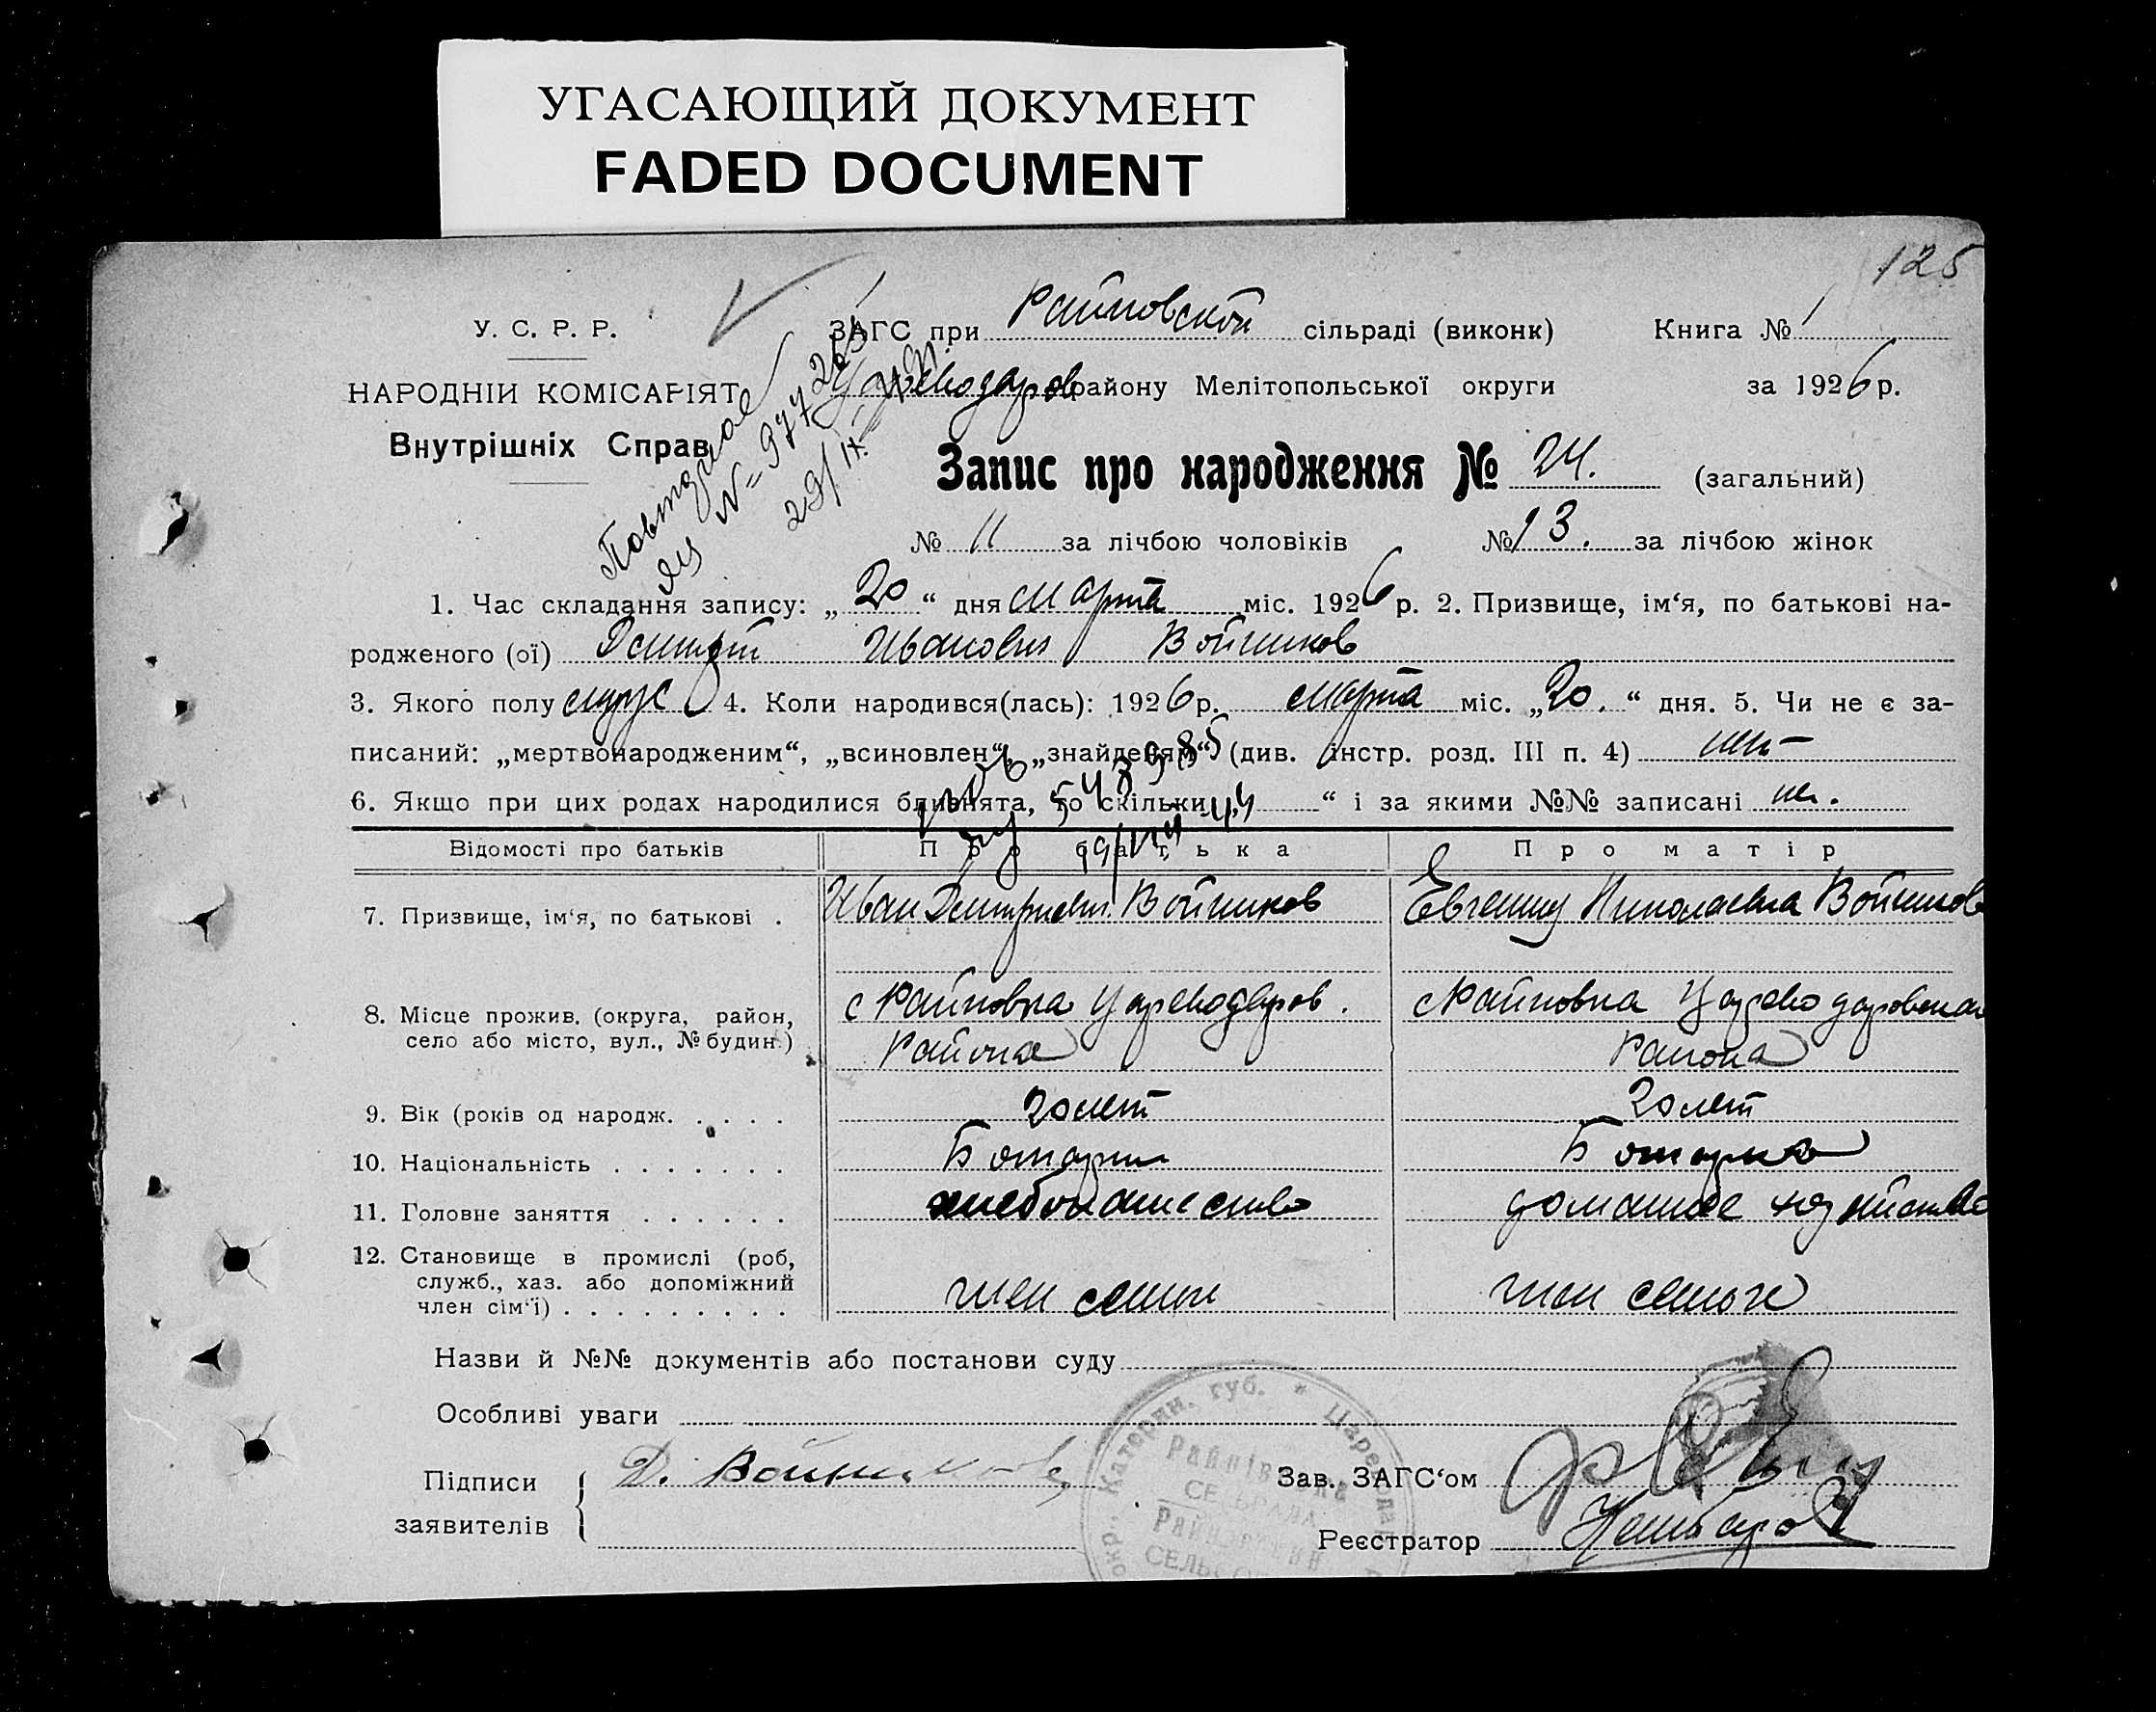 УГАСАЮЩИЙ ДОКУМЕНТ
FADED DOCUMENT
125
У. С. Р. Р.
ЗАГС при Райновской сільраді (виконк) Книга № 1
НАРОДНІЙ КОМІСАРІЯТ
Цареводаров району Мелітопольської округи за 1926 р.
Внутрішніх Справ
Повторное
Запис про народження № 24. (загальний)
№ 11 за лічбою чоловіків № 13. за лічбою жінок
1. Час складання запису: „20“ дня Марта міс. 1926 р. 2. Призвище, ім‘я, по батькові на-
родженого (ої) Дмитрий Иванович Войников
3. Якого полу муж 4. Коли народився(лась): 1926 р. Марта міс. „20.“ дня. 5. Чи не є за-
писаний: „мертвонародженим“, „всиновлен“, „знайденям“ (див. інстр. розд. III п. 4) нет
6. Якщо при цих родах народилися близнята, то скільки „ “ і за якими №№ записані нет.
Відомості про батьків Про батька Про матір
7. Призвище, ім‘я, по батькові . Иван Дмитриевич Войников Евгения Николаевна Войников
8. Місце прожив. (округа, район, село або місто, вул., № будин.) с Райновка Цареводаров. Района с Райновка Царево даровска Района
9. Вік (років од народж. . . . . 20 лет 20 лет
10. Національність . . . . . . . Болгарин Болгарка
11. Головне заняття . . . . . . хлебопашество домашнее хозяйство
12. Становище в промислі (роб, служб., хаз. або допоміжний член сім‘ї) . . . . . . . . . член семьи член семьи
Назви й №№ документів або постанови суду
Особливі уваги
Підписи заявителів Д. Войников
Зав. ЗАГС‘ом
Реєстратор
губ. * Царе
СЕЛЬРАДА